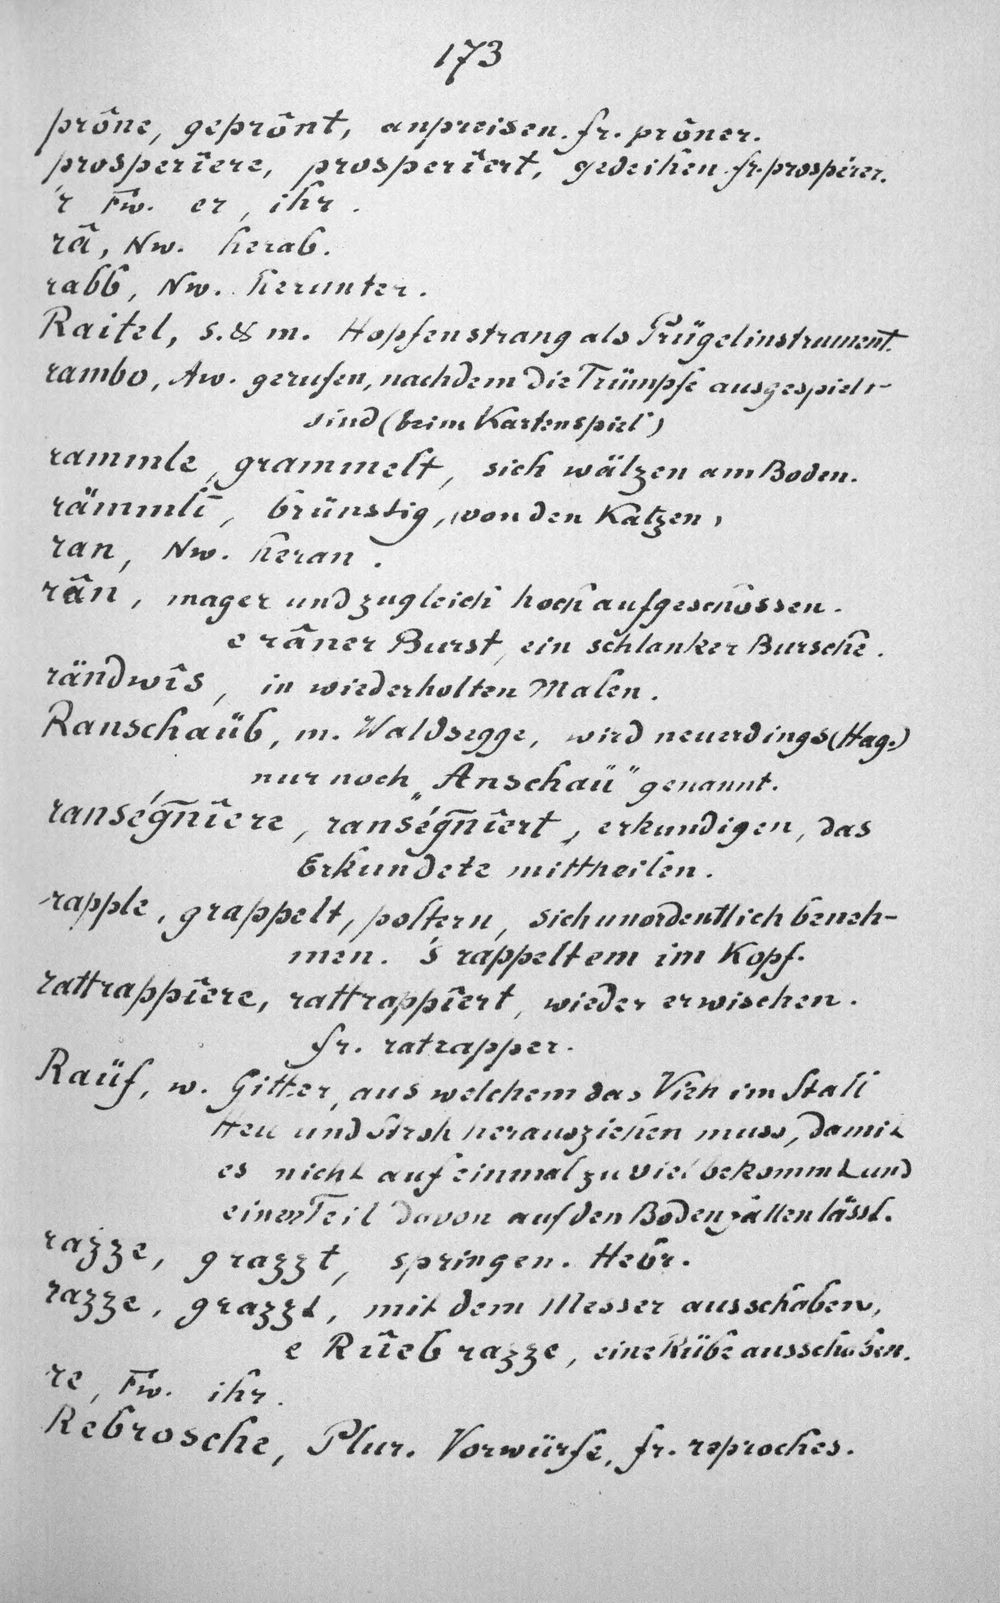 173
prône, geprônt, anpreisen. fr. prôner.
prosperîere, prosperîert, gedeihen. fr. prospérer.
'r Fw. er, ihr.
râ, Nw. herab.
rabb, Nw. herunter.
Raitel, s. & m. Hopfenstrang als Prügelinstrument.
rambo, Aw. gerufen, nachdem die Trümpfe ausgespielt
sind (beim Kartenspiel)
rammle, grammelt, sich wälzen am Boden.
rämmlī, brünstig, von den Katzen,
ran, Nw. heran.
rân, mager und zugleich hoch aufgeschossen.
e râner Burst, ein schlanker Bursche.
rändwîs, in wiederholten Malen.
Ranschaüb, m. Waldsegge, wird neuerdings (Hag.)
nur noch „Anschaü" genannt.
ranségnîere, ranségnîert, erkundigen, das
Erkundete mittheilen.
rapple, grappelt, poltern, sich unordentlich beneh-
men. 's rappelt em im Kopf.
rattrappîere, rattrappîert, wieder erwischen.
fr. ratrapper.
Raüf, w. Gitter, aus welchem das Vieh im Stall
Heu und Stroh herausziehen muss, damit
es nicht auf einmal zu viel bekommt und
einen Teil davon auf den Boden fallen lässt.
razze, grazzt, springen. Hebr.
razze, grazzt, mit dem Messer ausschaben,
e Rüeb razze, eine Rübe ausschaben.
re, Fw. ihr.
Rebrosche, Plur. Vorwürfe, fr. reproches.